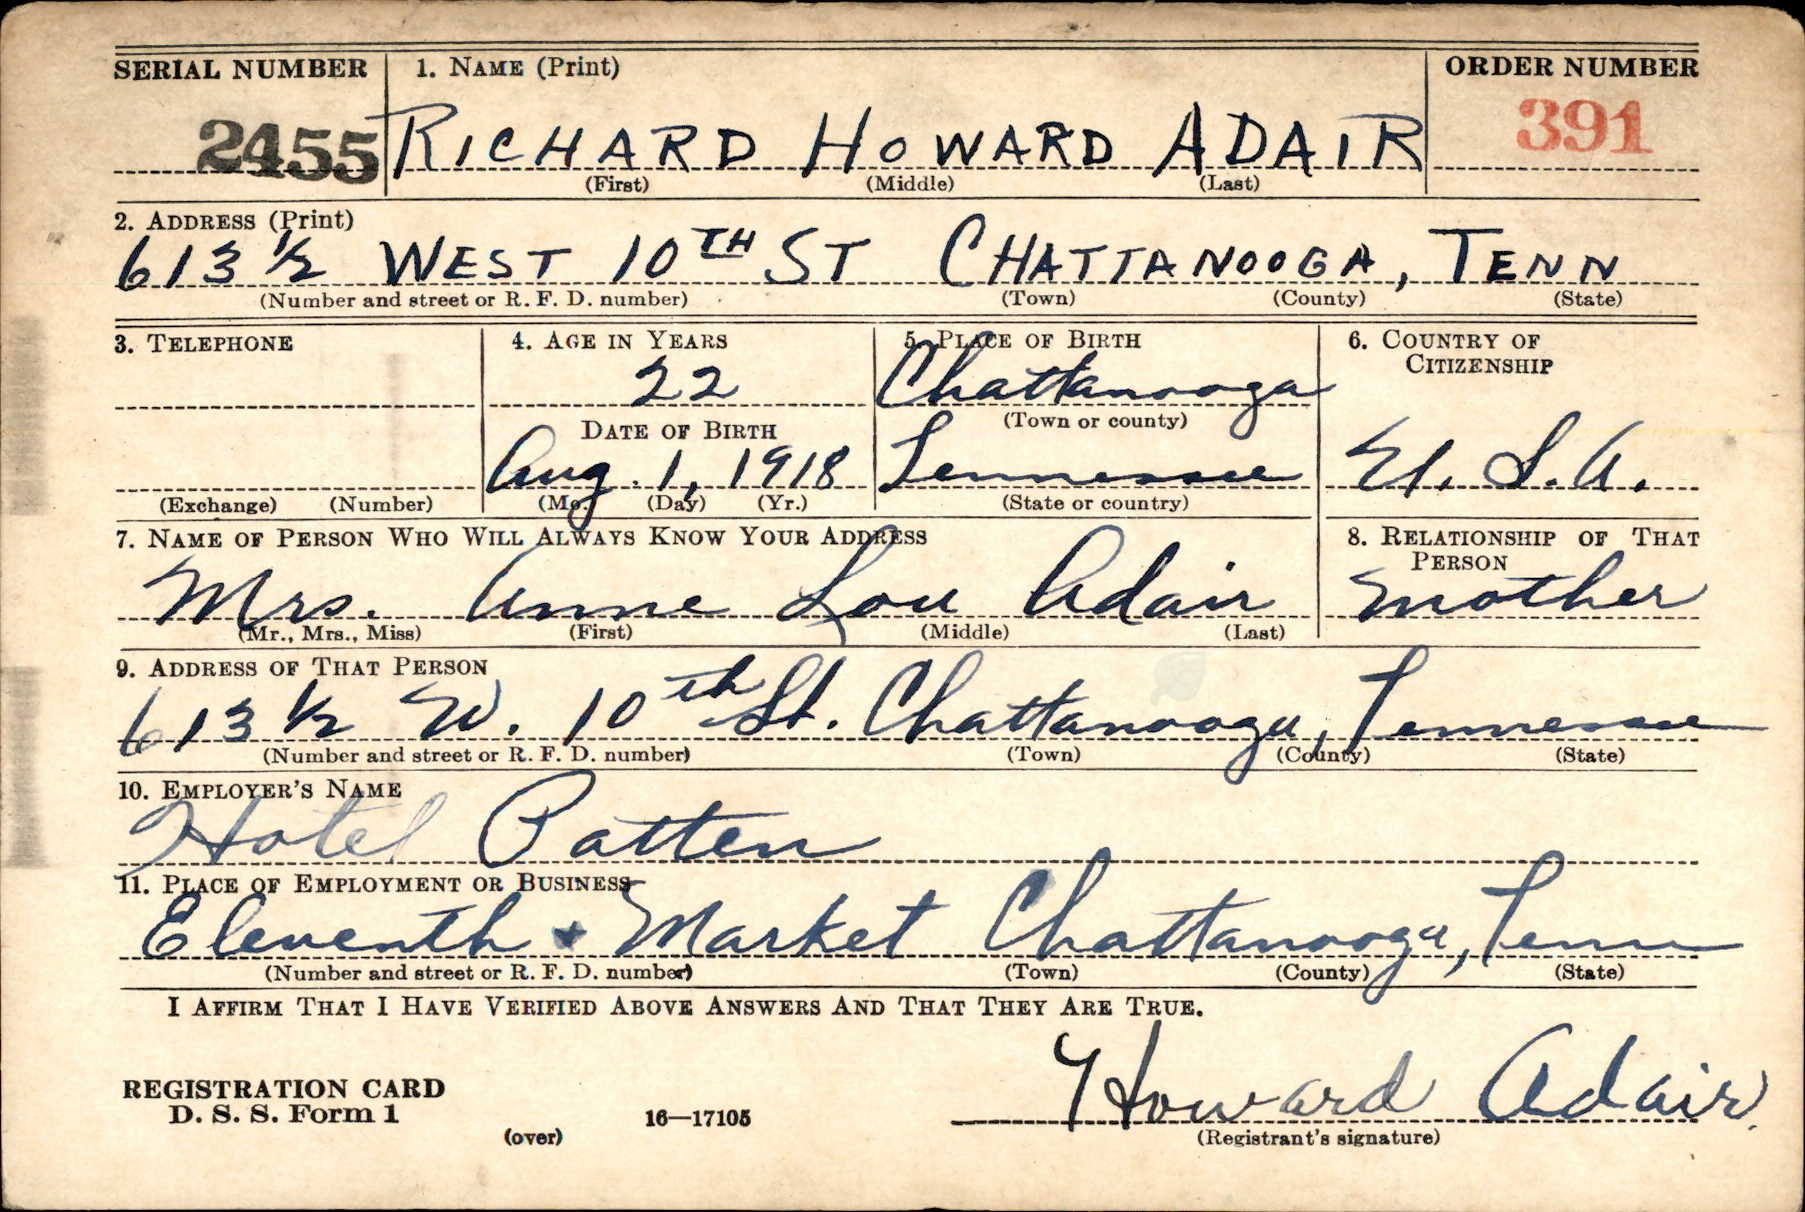 SERIAL NUMBER 1. NAME (Print) ORDER NUMBER
2455 RICHARD HOWARD ADAIR 391
(First) (Middle) (Last)
2. ADDRESS (Print)
613 ½ WEST 10TH ST CHATTANOOGA, TENN
(Number and street or R. F. D. number) (Town) (County) (State)
3. TELEPHONE 4. AGE IN YEARS 5. PLACE OF BIRTH 6. COUNTRY OF
CITIZENSHIP
22 Chattanooga
DATE OF BIRTH (Town or county)
Aug. 1, 1918 Tennessee U. S. A.
(Exchange) (Number) (Mo.) (Day) (Yr.) (State or country)
7. NAME OF PERSON WHO WILL ALWAYS KNOW YOUR ADDRESS 8. RELATIONSHIP OF THAT
PERSON
Mrs. Anne Lou Adair Mother
(Mr., Mrs., Miss) (First) (Middle) (Last)
9. ADDRESS OF THAT PERSON
613 ½ W. 10th St. Chattanooga, Tennessee
(Number and street or R. F. D. number) (Town) (County) (State)
10. EMPLOYER'S NAME
Hotel Patten
11. PLACE OF EMPLOYMENT OR BUSINESS
Eleventh + Market Chattanooga, Tenn
(Number and street or R. F. D. number) (Town) (County) (State)
I AFFIRM THAT I HAVE VERIFIED ABOVE ANSWERS AND THAT THEY ARE TRUE.
REGISTRATION CARD
D. S. S. Form 1 16—17105 Howard Adair
(over) (Registrant's signature)